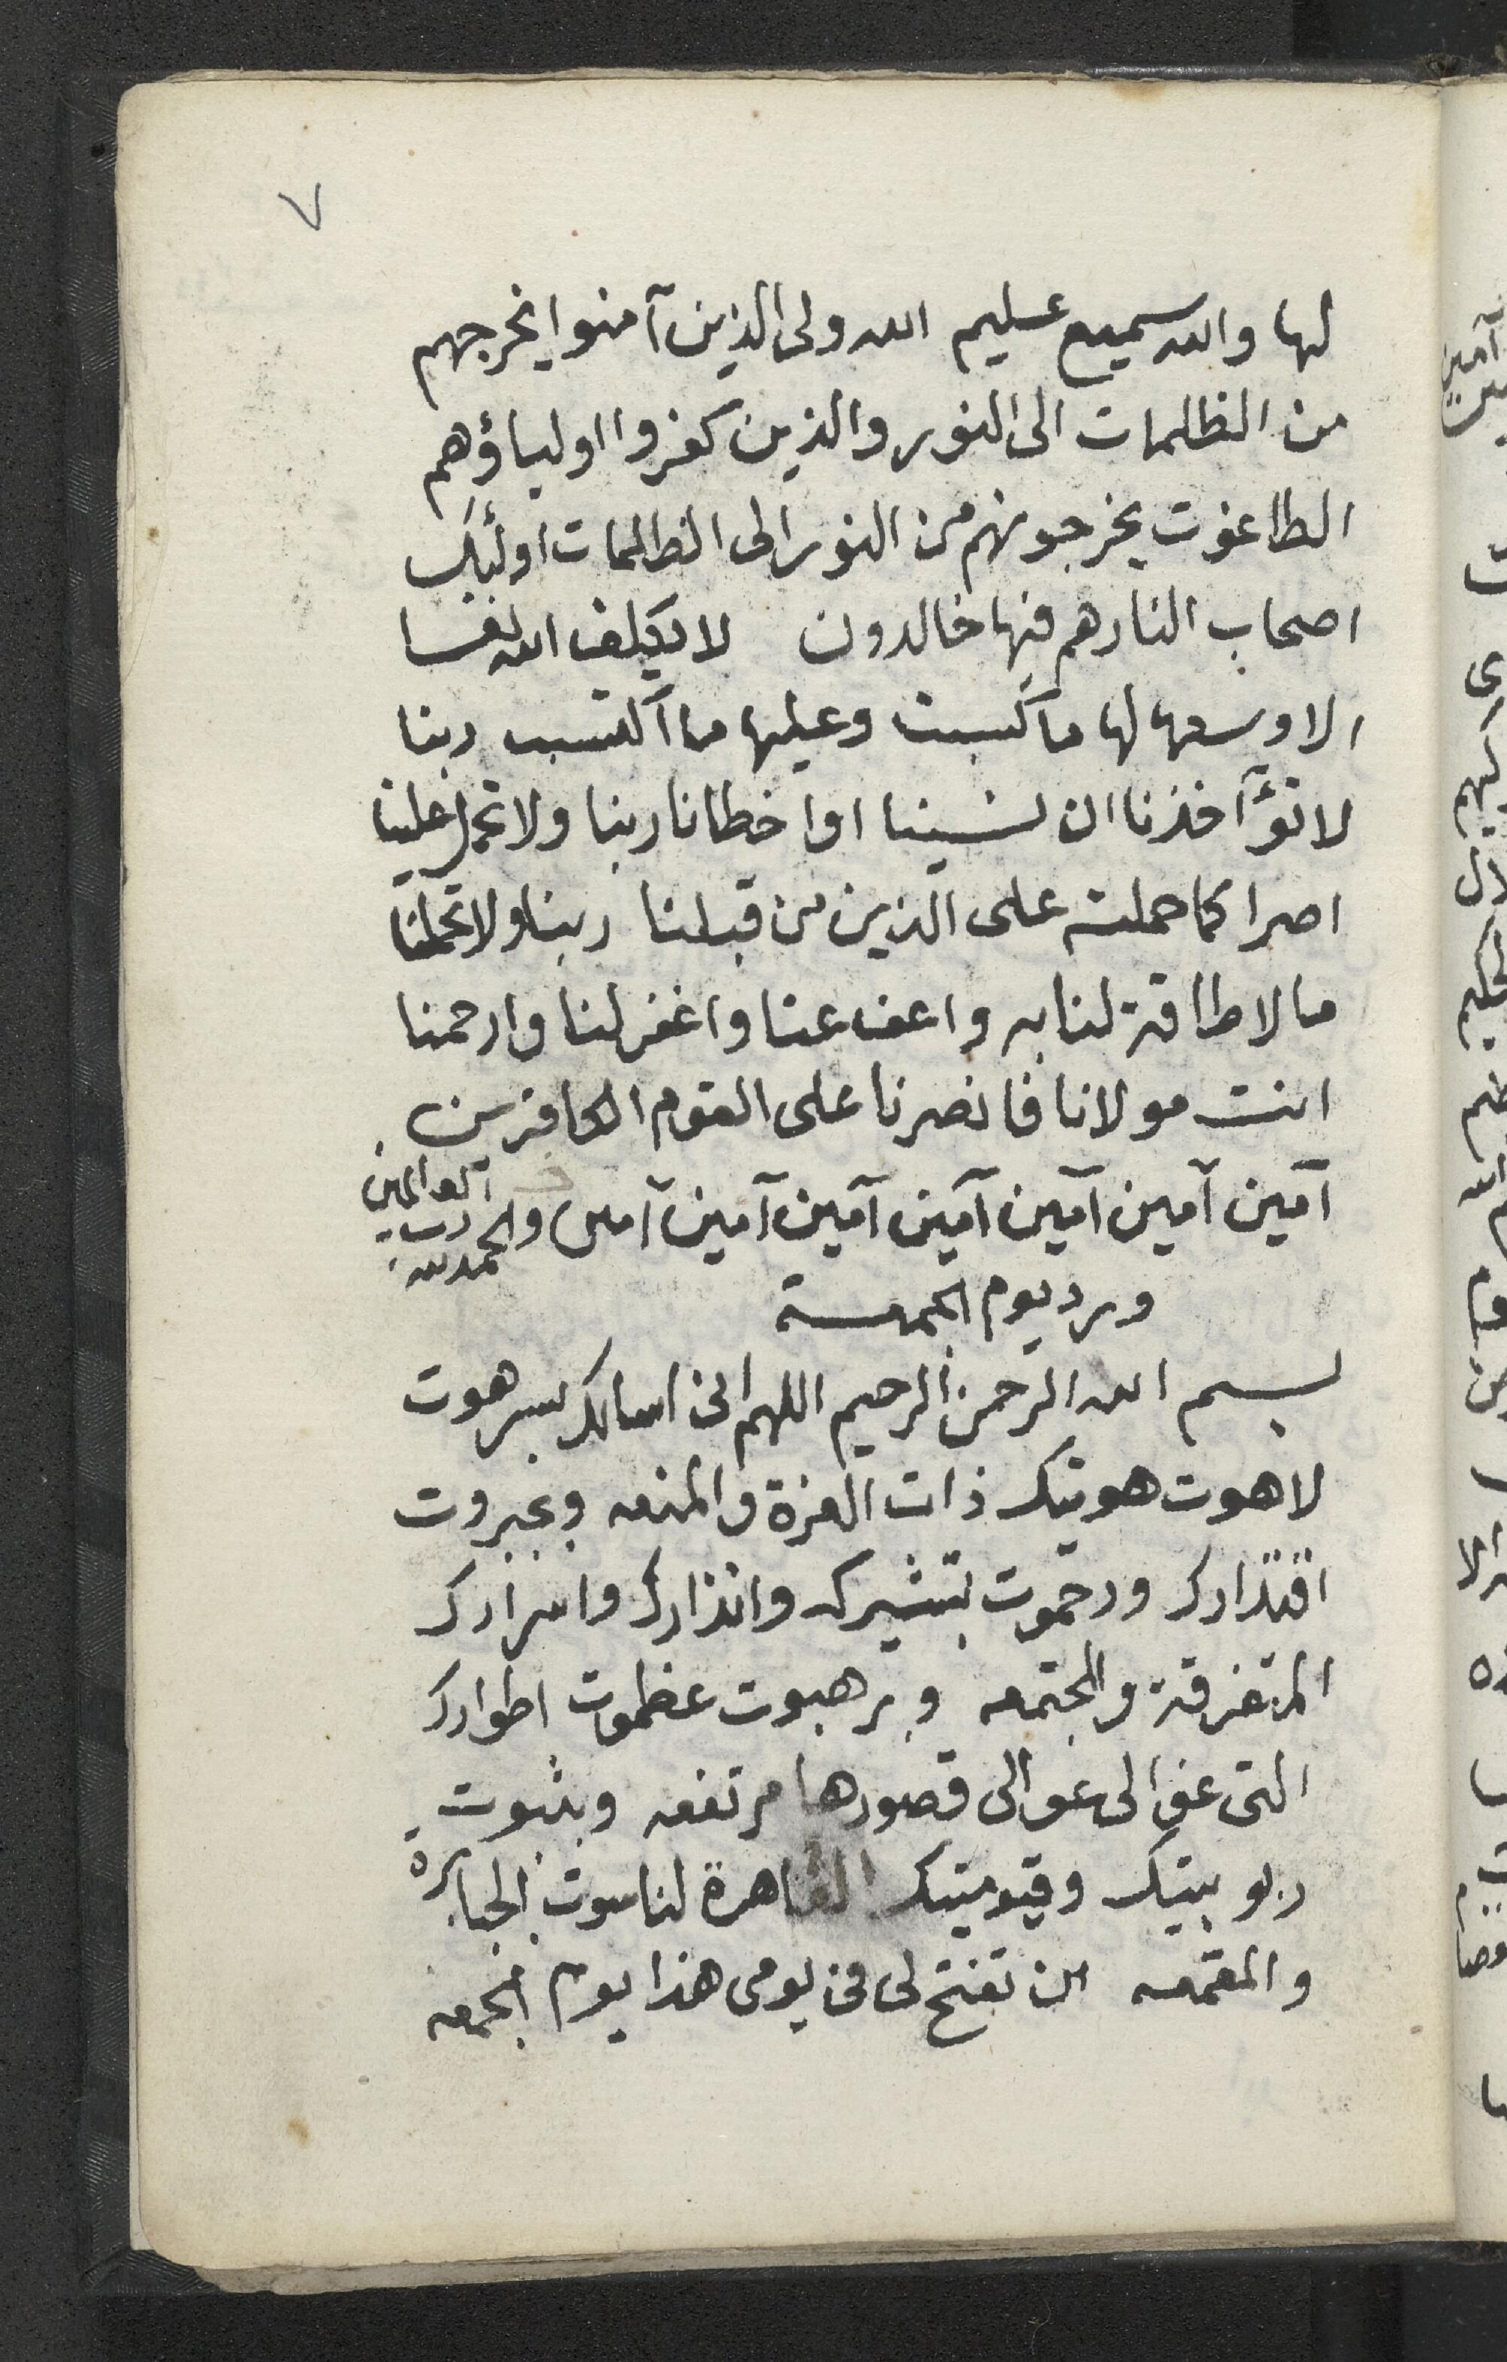 ٧
لها والله سميع عليم الله ولى الذين آمنوا يخرجهم
من الظلمات الى النور والذين كفروا اولياؤهم
الطاغوت يخرجونهم من النور الى الظالمات اولئك
اصحاب النار هم فيها خالدون لا يكلف الله نفسا
الا وسعها لها ما كسبت وعليها ما اكتسب ربنا
لا تؤآخذنا ان نسينا او اخطانا ربنا ولا تحمل علينا
اصرا كما حملته على الذين من قبلنا ربنا ولا تحملنا
ما لا طاقة لنا به واعف عنا واغفر لنا وارحمنا
انت مولانا فانصرنا على القوم الكافرين
آمين آمين آمين آمين آمين آمين آمين والحمد لله رب العالمين
ورد يوم الجمعة
بسم الله الرحمن الرحيم اللهم انى اسالك بسر هوت
لاهوت هويتك ذات العزة والمنعه وبجبروت
اقتدارك ورحموت بتشيرك وانذارك واسرارك
المتفرقة والمجتمعه وبرهبوت عظموت اطوارك
التى عوالى عوالى قصورها مرتفعه وبثبوت
ربوبيتك وقيوميتك القاهرة لناسوت الجبابرة
والمقمعه ان تفتح لى فى يومى هذا يوم الجمعه